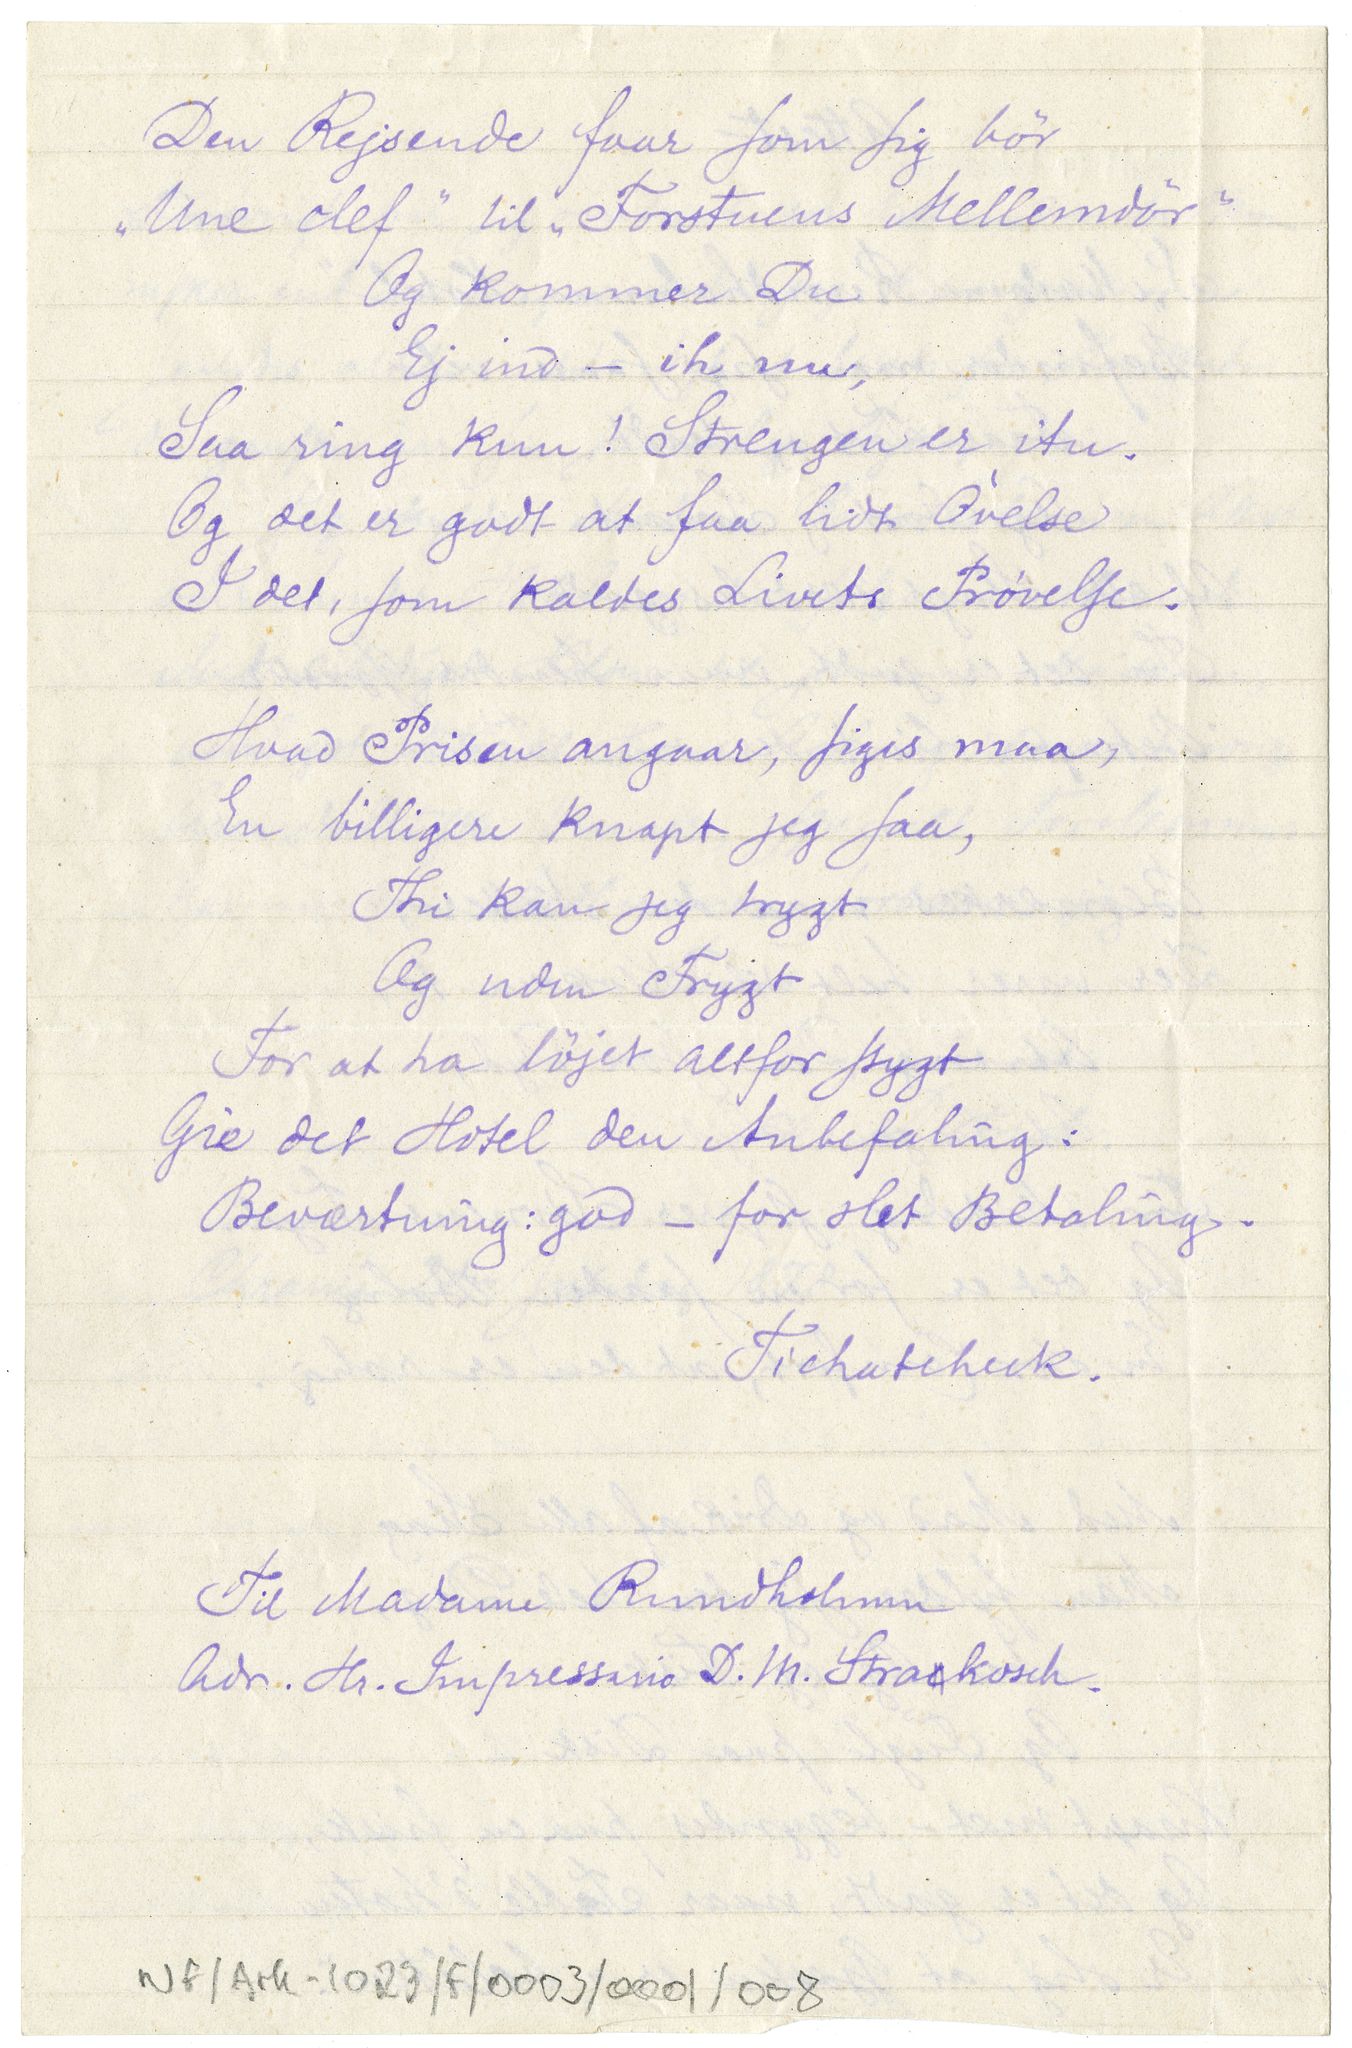 Den Rejsende faar som sig bör
„Une clef" til „Forstuens Mellemdör"
Og kommer Du
Ej ind – ih nu,
Saa ring kun! Strengen er itu.
Og det er godt at faa lidt Övelse
I det, som kaldes Livets Prövelse.
Hvad Prisen angaar, siges maa,
En billigere knapt jeg saa,
Thi kan jeg trygt
Og uden Frygt
For at ha löjet altfor stygt
Gie det Hotel den Anbefaling:
Beværtning: god – for slet Betaling.
Tichatscheck.
Til Madame Rundholmen
Adr. Hr. Impressario D. M. Strackosch.
NF/Ark-1023/F/0003/0001/008